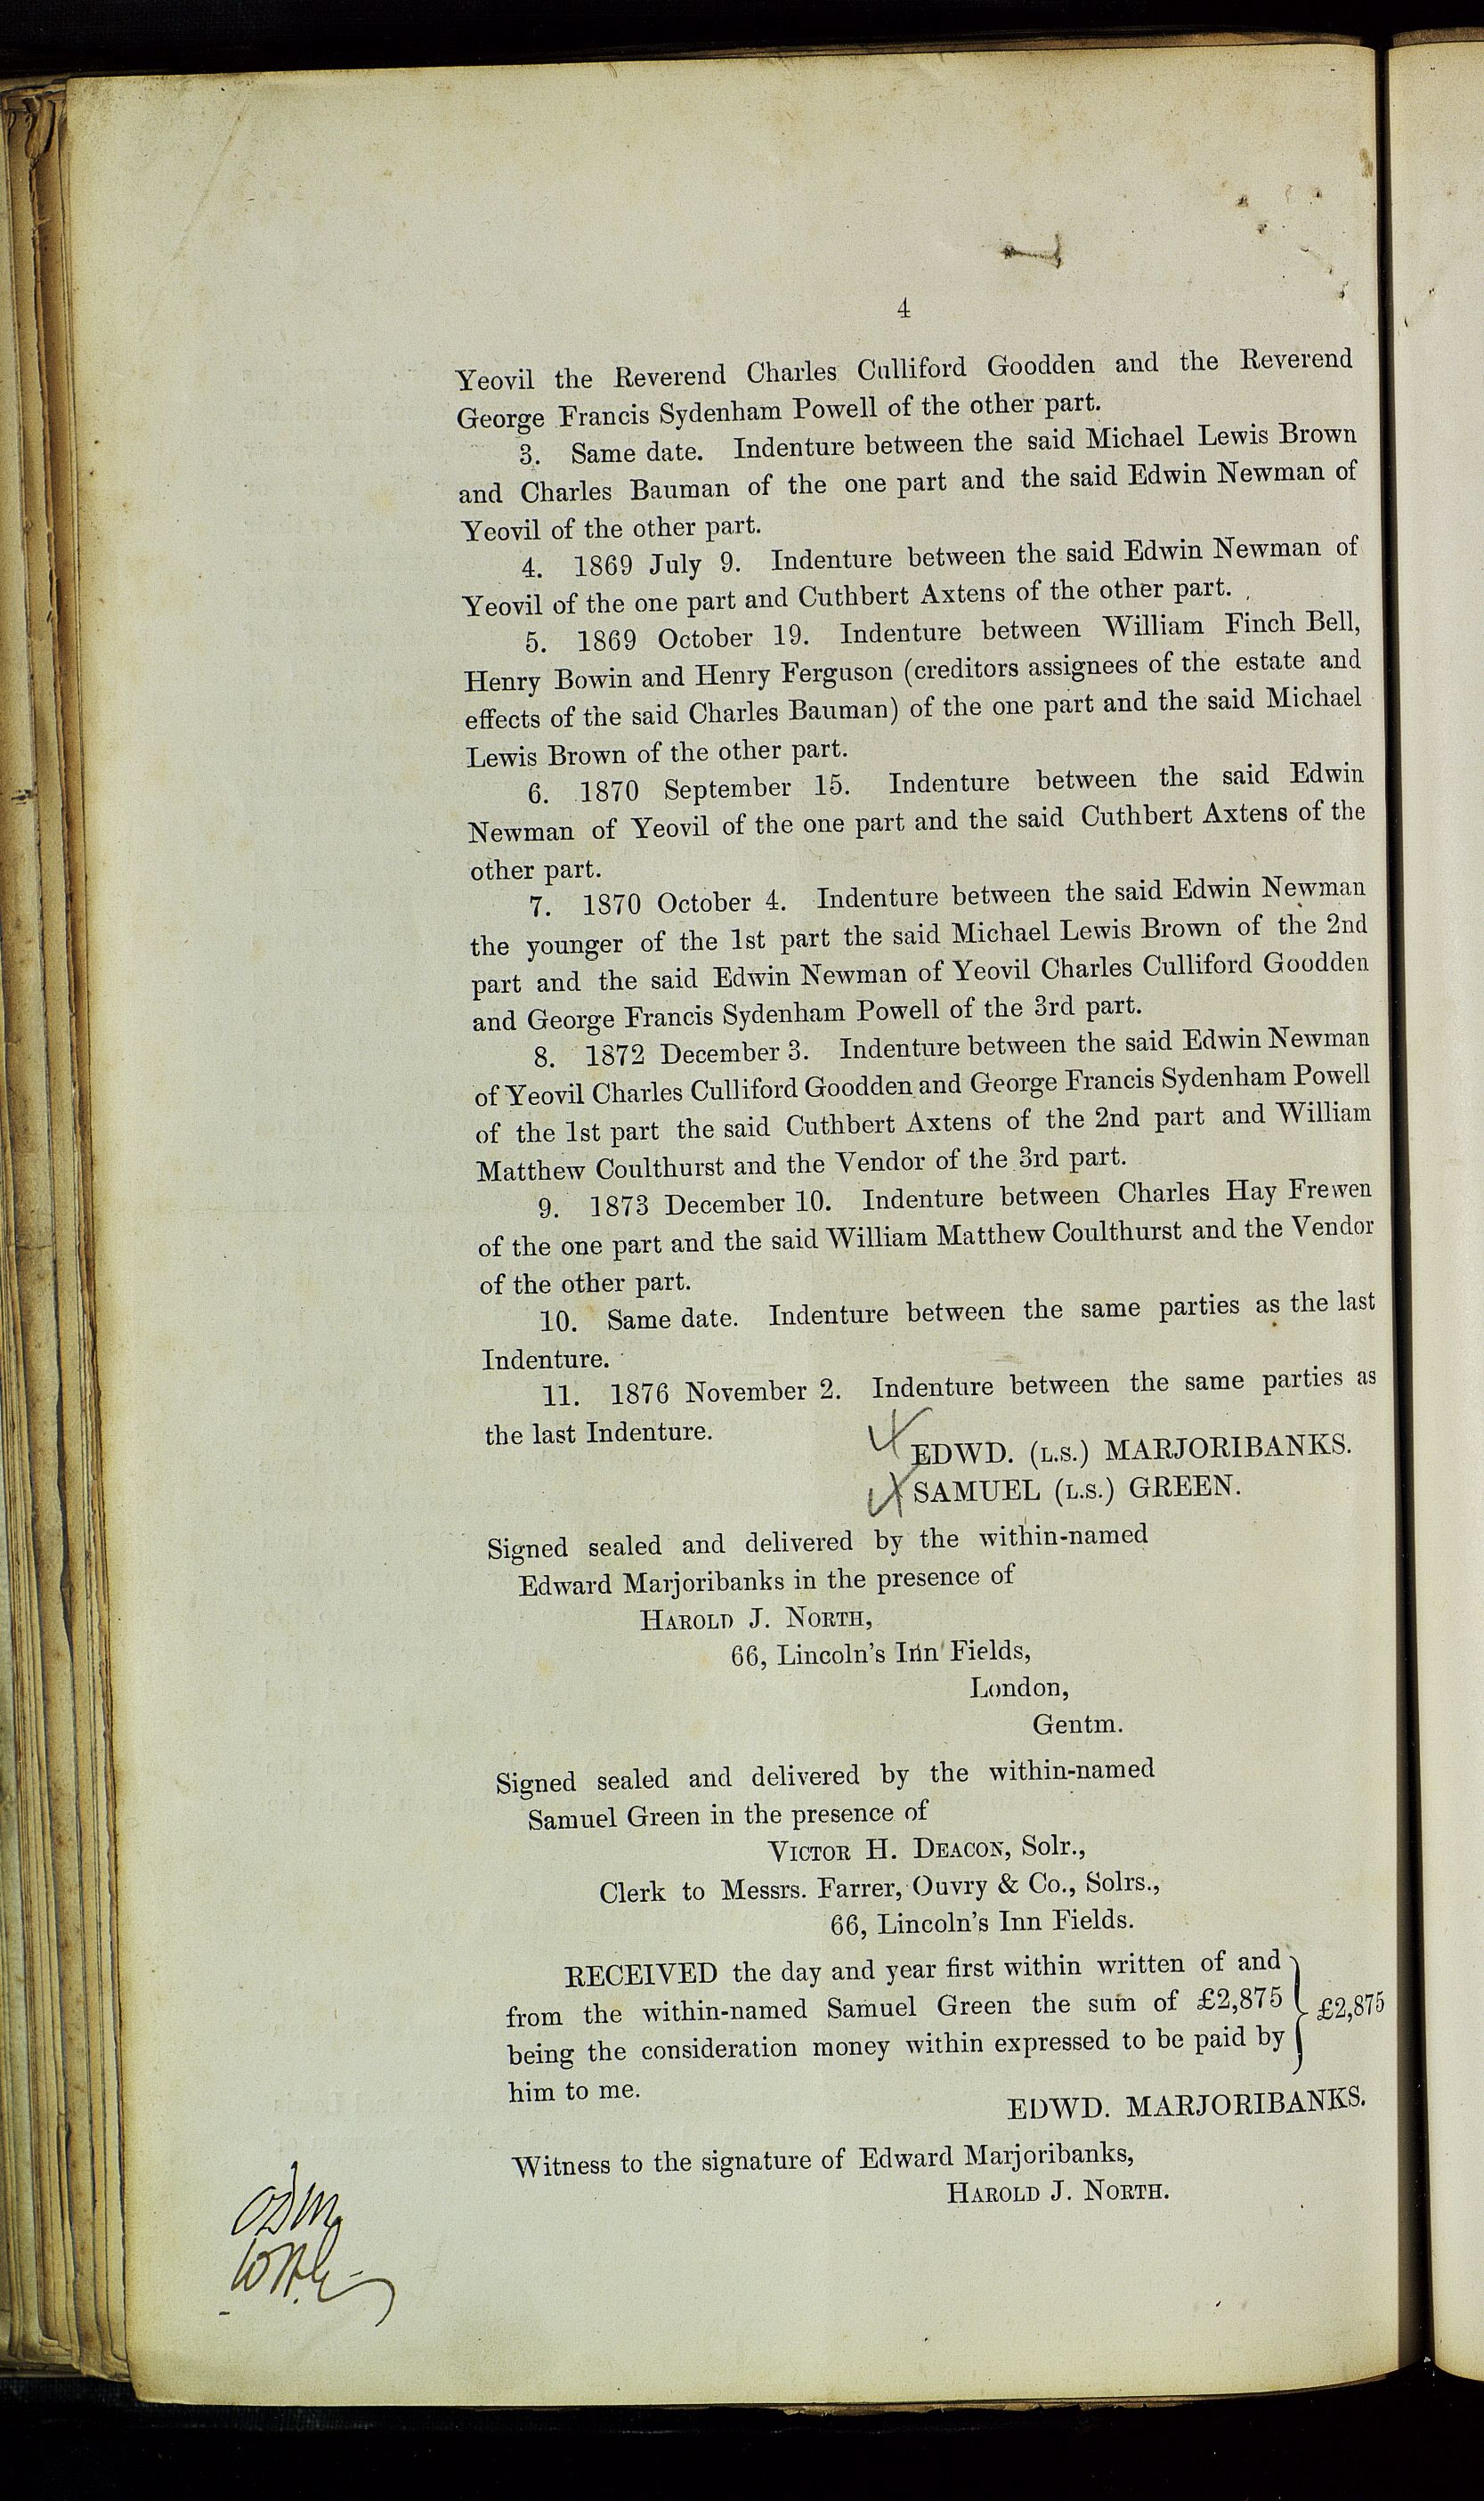 4
Yeovil the Reverend Charles Culliford Goodden and the Reverend
George Francis Sydenham Powell of the other part.
3. Same date. Indenture between the said Michael Lewis Brown
and Charles Bauman of the one part and the said Edwin Newman of
Yeovil of the other part.
4. 1869 July 9. Indenture between the said Edwin Newman of
Yeovil of the one part and Cuthbert Axtens of the other part.
5. 1869 October 19. Indenture between William Finch Bell,
Henry Bowin and Henry Ferguson (creditors assignees of the estate and
effects of the said Charles Bauman) of the one part and the said Michael
Lewis Brown of the other part.
6. 1870 September 15. Indenture between the said Edwin
Newman of Yeovil of the one part and the said Cuthbert Axtens of the
other part.
7. 1870 October 4. Indenture between the said Edwin Newman
the younger of the 1st part the said Michael Lewis Brown of the 2nd
part and the said Edwin Newman of Yeovil Charles Culliford Goodden
and George Francis Sydenham Powell of the 3rd part.
8. 1872 December 3. Indenture between the said Edwin Newman
of Yeovil Charles Culliford Goodden and George Francis Sydenham Powell
of the 1st part the said Cuthbert Axtens of the 2nd part and William
Matthew Coulthurst and the Vendor of the 3rd part.
9. 1873 December 10. Indenture between Charles Hay Frewen
of the one part and the said William Matthew Coulthurst and the Vendor
of the other part.
10. Same date. Indenture between the same parties as the last
Indenture.
11. 1876 November 2. Indenture between the same parties as
the last Indenture.
EDWD. (L.S.) MARJORIBANKS.
SAMUEL (L.S.) GREEN.
Signed sealed and delivered by the within-named
Edward Marjoribanks in the presence of
HAROLD J. NORTH,
66, Lincoln's Inn Fields,
London,
Gentm.
Signed sealed and delivered by the within-named
Samuel Green in the presence of
VICTOR H. DEACON, Solr.,
Clerk to Messrs. Farrer, Ouvry & Co., Solrs.,
66, Lincoln's Inn Fields.
RECEIVED the day and year first within written of and
from the within-named Samuel Green the sum of £2,875 £2,875
being the consideration money within expressed to be paid by
him to me.
EDWD. MARJORIBANKS.
Witness to the signature of Edward Marjoribanks,
HAROLD J. NORTH.